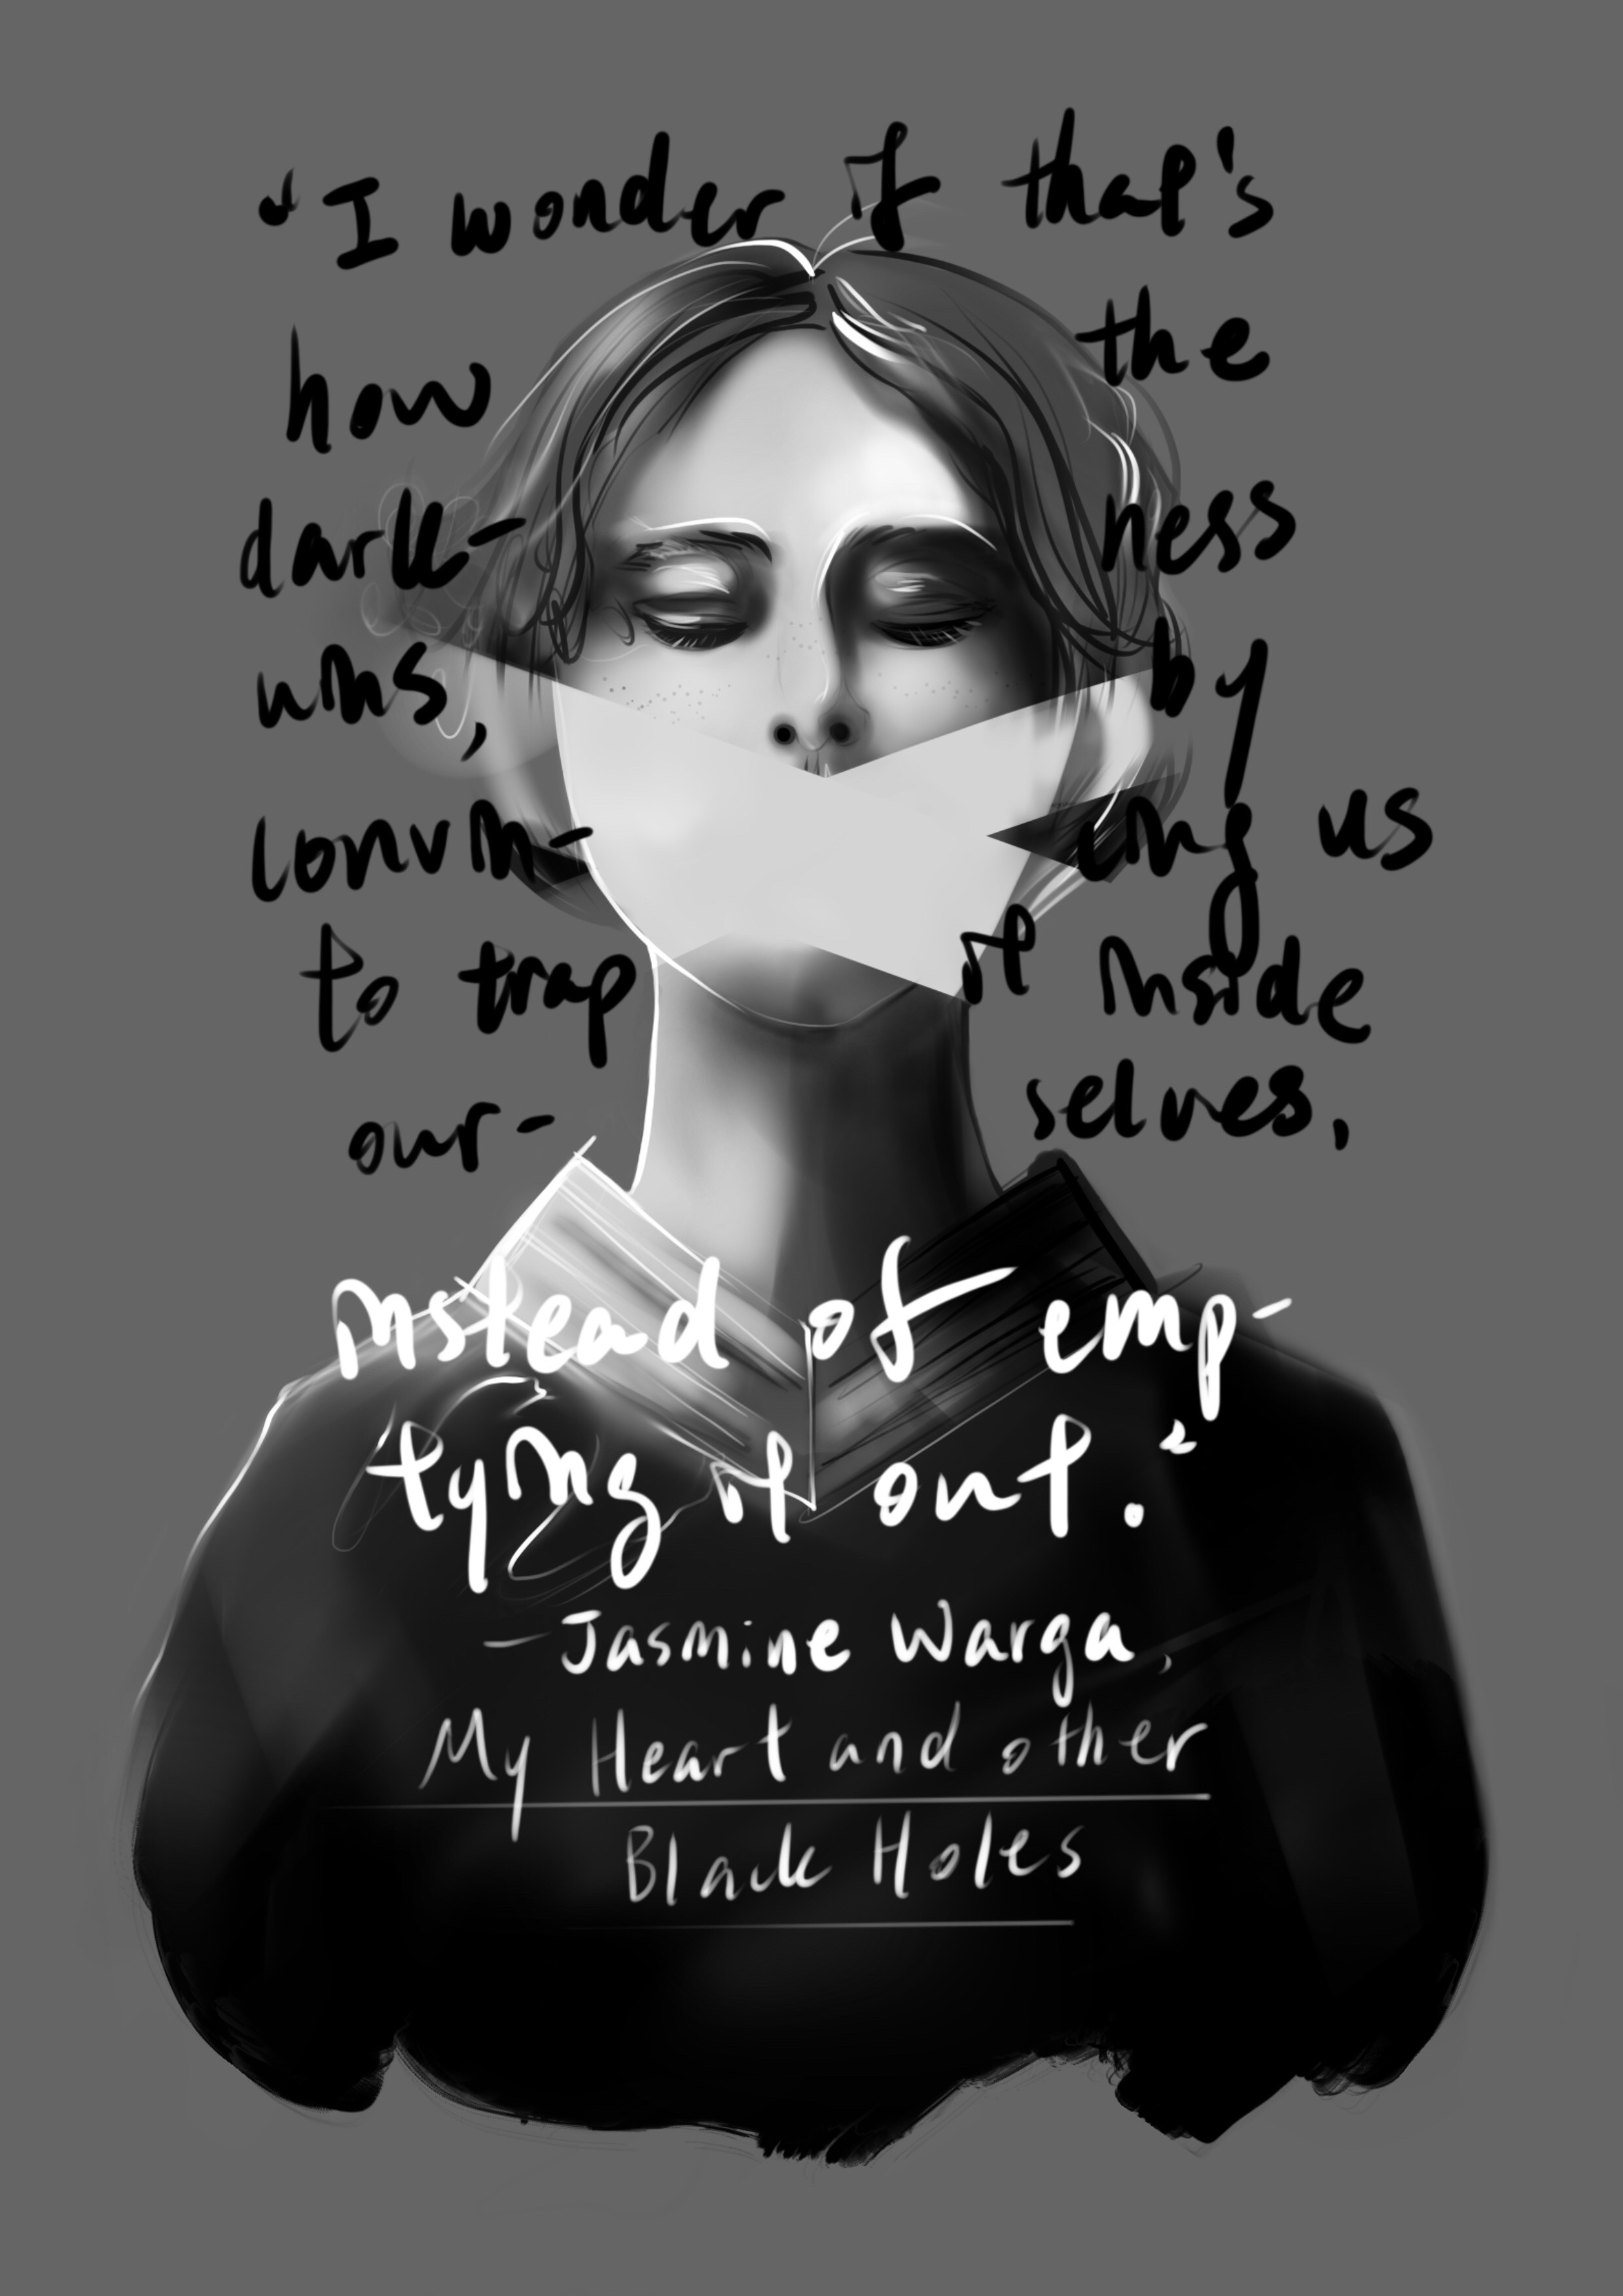 "I wonder if that's
how the
dark- ness
wins, by
convin- cing us
to trap it inside
our- selves,
instead of emp-
tying it out."
- Jasmine Warga,
My Heart and other
Black Holes